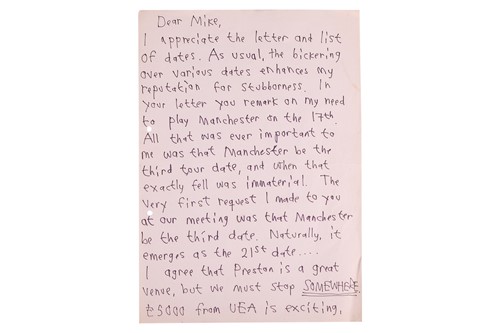 Dear Mike,
I appreciate the letter and list
of dates. As usual, the bickering
over various dates enhances my
reputation for stubborness. In
your letter you remark on my need
to play Manchester on the 17th.
All that was ever important to
me was that Manchester be the
third tour date, and when that
exactly fell was immaterial. The
very first request I made to you
at our meeting was that Manchester
be the third date. Naturally, it
emerges as the 21st date....
I agree that Preston is a great
venue, but we must stop SOMEWHERE.
£5000 from UEA is exciting,